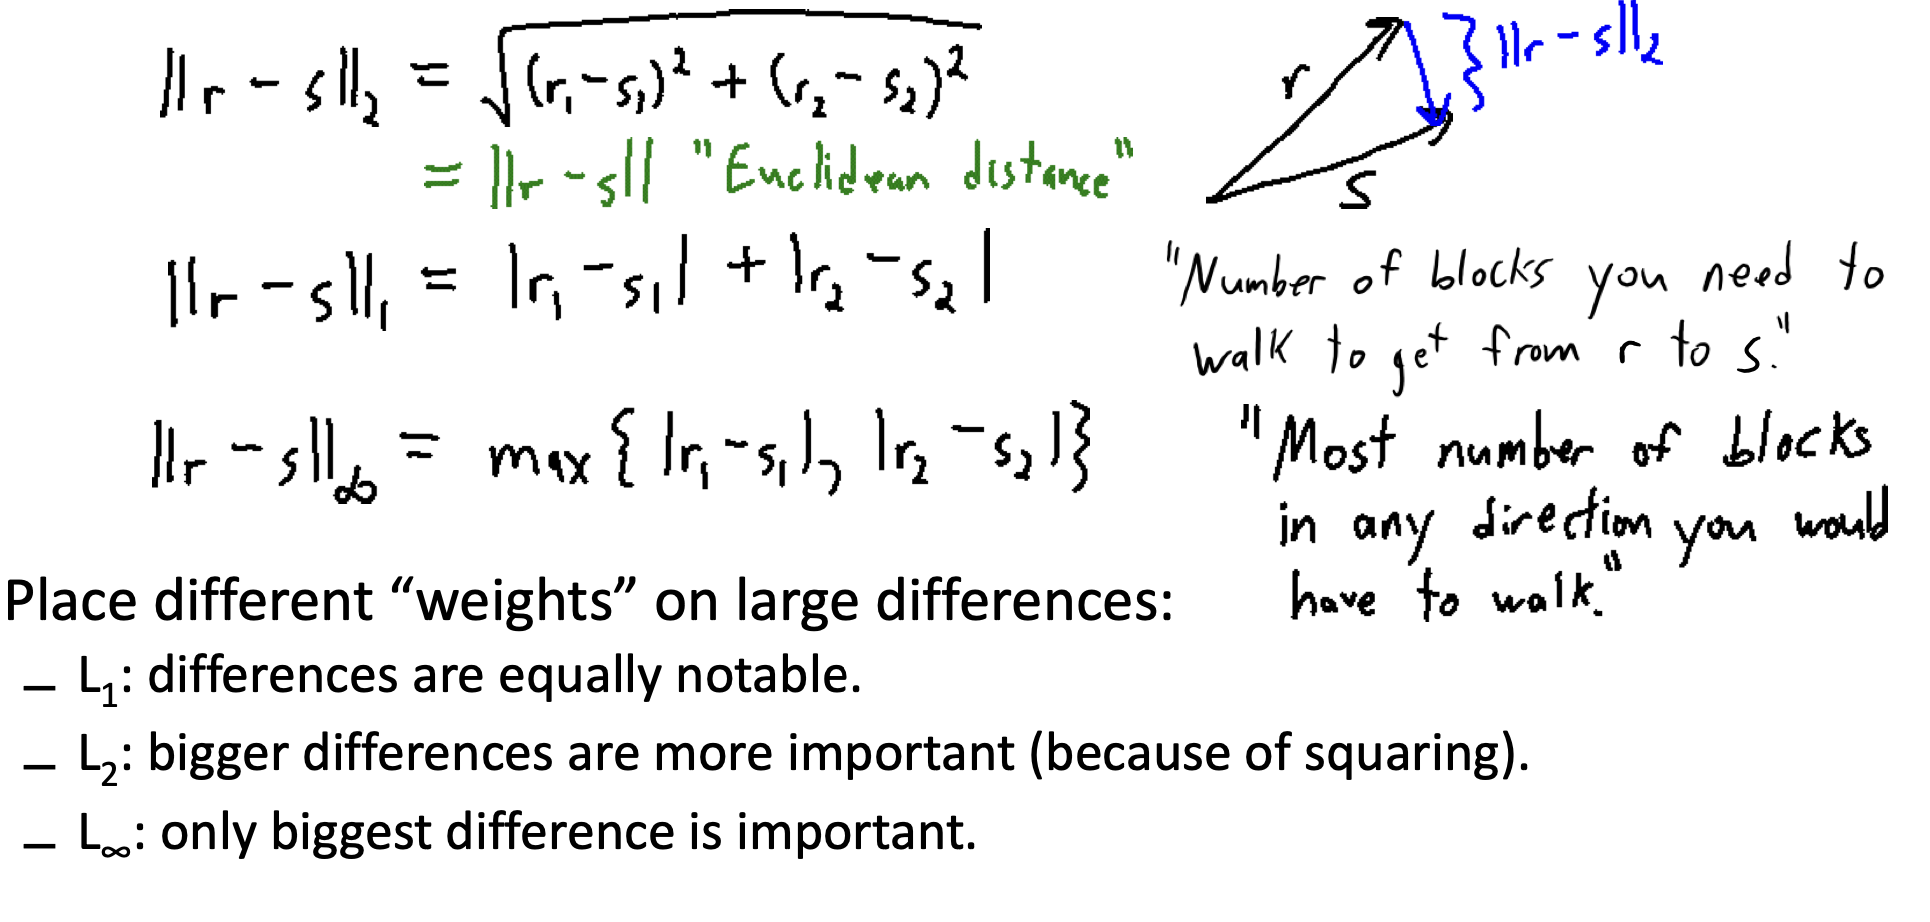 ||r - s||₂ = √((r₁-s₁)² + (r₂-s₂)²)
r
s
}||r-s||₂
= ||r-s|| "Euclidean distance"
||r-s||₁ = |r₁-s₁| + |r₂-s₂|
"Number of blocks you need to
walk to get from r to s."
||r-s||∞ = max{|r₁-s₁|, |r₂-s₂|}
"Most number of blocks
in any direction you would
have to walk."
Place different “weights” on large differences:
– L₁: differences are equally notable.
– L₂: bigger differences are more important (because of squaring).
– L∞: only biggest difference is important.